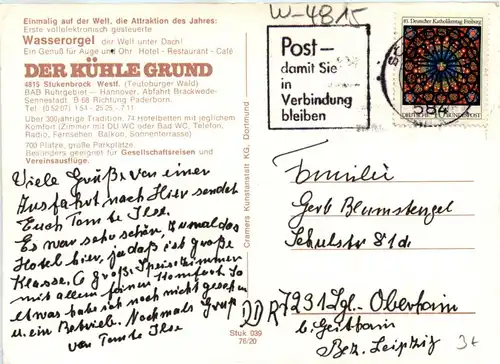 W-4815
Einmalig auf der Welt, die Attraktion des Jahres:
Erste vollelektronisch gesteuerte
Wasserorgel der Welt unter Dach!
Ein Genuß für Auge und Ohr Hotel - Restaurant - Café
DER KÜHLE GRUND
4815 Stukenbrock Westf. (Teutoburger Wald)
BAB Ruhrgebiet — Hannover, Abfahrt Brackwede-
Sennestadt, B 68 Richtung Paderborn.
Tel. (0 52 07) 1 54 - 25 25 - 7 11
Über 300jährige Tradition. 74 Hotelbetten mit jeglichem
Komfort (Zimmer mit DU WC oder Bad WC, Telefon,
Radio, Fernsehen, Balkon, Sonnenterrasse)
700 Plätze, große Parkplätze.
Besonders geeignet für Gesellschaftsreisen und
Vereinsausflüge.
Post—
damit Sie
in
Verbindung
bleiben
85. Deutscher Katholikentag Freiburg
DEUTSCHE BUNDESPOST
Viele Grüße von einer
Ausfahrt nach Hier sendet
Euch Tante Ilse.
Es war sehr schön, zumal das
Hotel hier, ja daß ist große
Klasse. 6 große Speisezimmer
mit allem feinen Komfort. So
etwas habe ich noch nicht gesehen
u. ein Betrieb. Nochmals Gruß
von Tante Ilse
Cramers Kunstanstalt KG, Dortmund
Stuk 039
76/20
Familie
Gerb Blumstengel
Schulstr 81d
DDR 7231 Lgl.-Oberhain
b. Geithain
Bez. Leipzig